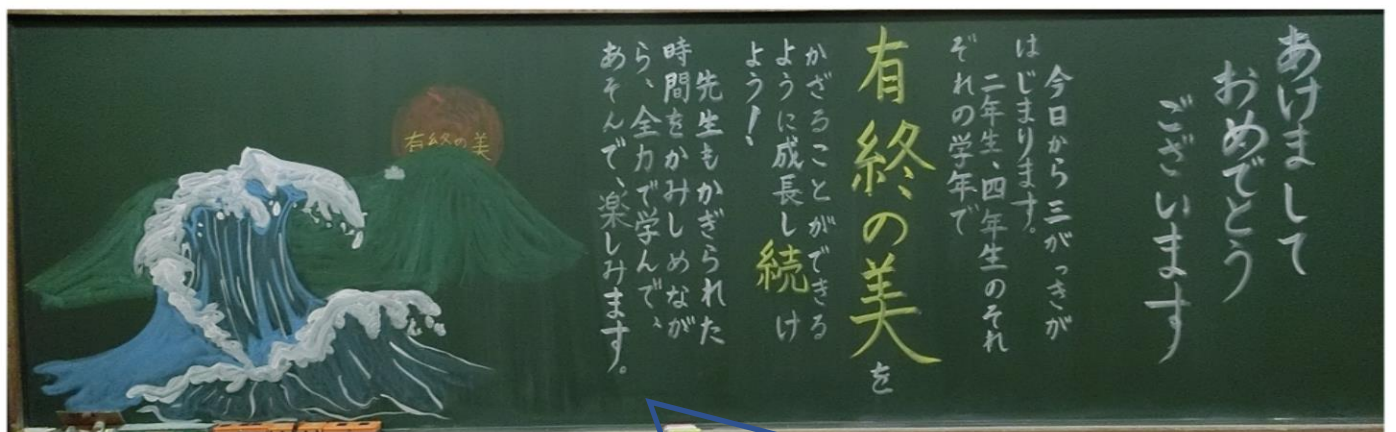 あけまして
おめでとう
ございます
今日から三がっきが
はじまります。
二年生、四年生のそれ
ぞれの学年で
有終の美を
かざることができる
ように成長し続け
よう!
先生もかぎられた
時間をかみしめなが
ら、全力で学んで、
あそんで、楽しみます。
有終の美